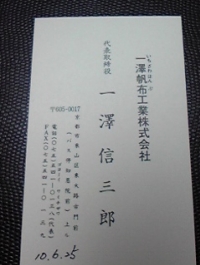 いちざわはんぷ
一澤帆布工業株式会社
代表取締役
一澤信三郎
〒605-0017
京都市東山区東大路古門前
上ル
電話(〇七五)五四一-
FAX(〇七五)五四一-
10.6.25